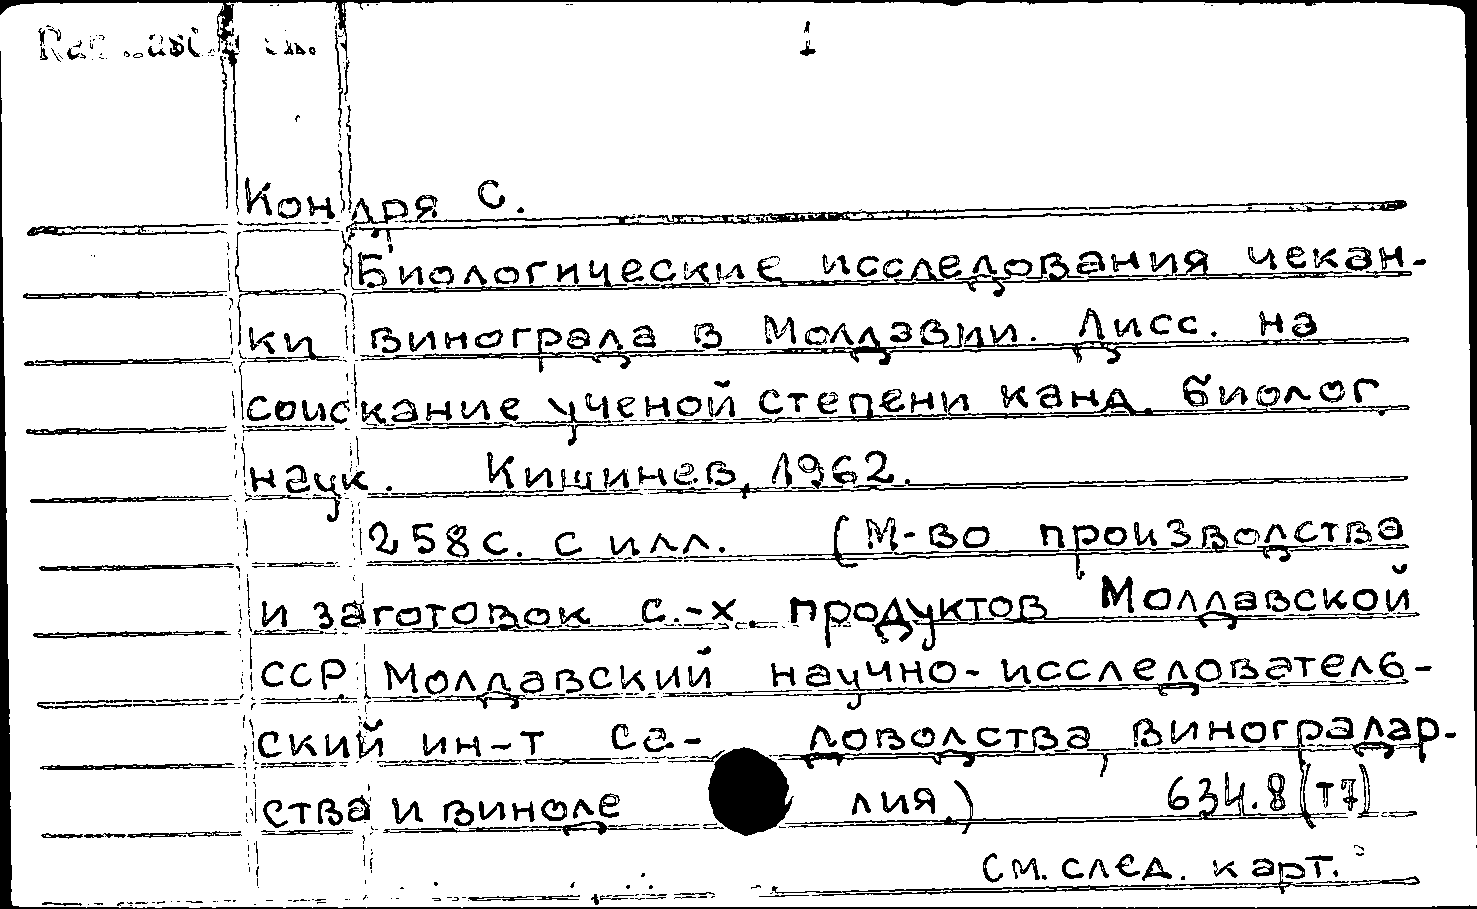 1
Кондря С.
Биологические исследования чекан-
ки винограда в Молдавии. Дисс. на
соискание ученой степени канд. биолог.
наук. Кишинев, 1962.
258с. с илл. (М-во производства
и заготовок с.-х. продуктов Молдавской
ССР. Молдавский научно-исследователь-
ский ин-т са- доводства, виноградар-
ства и виноде лия.) 634.8(т7)
см. след. карт.